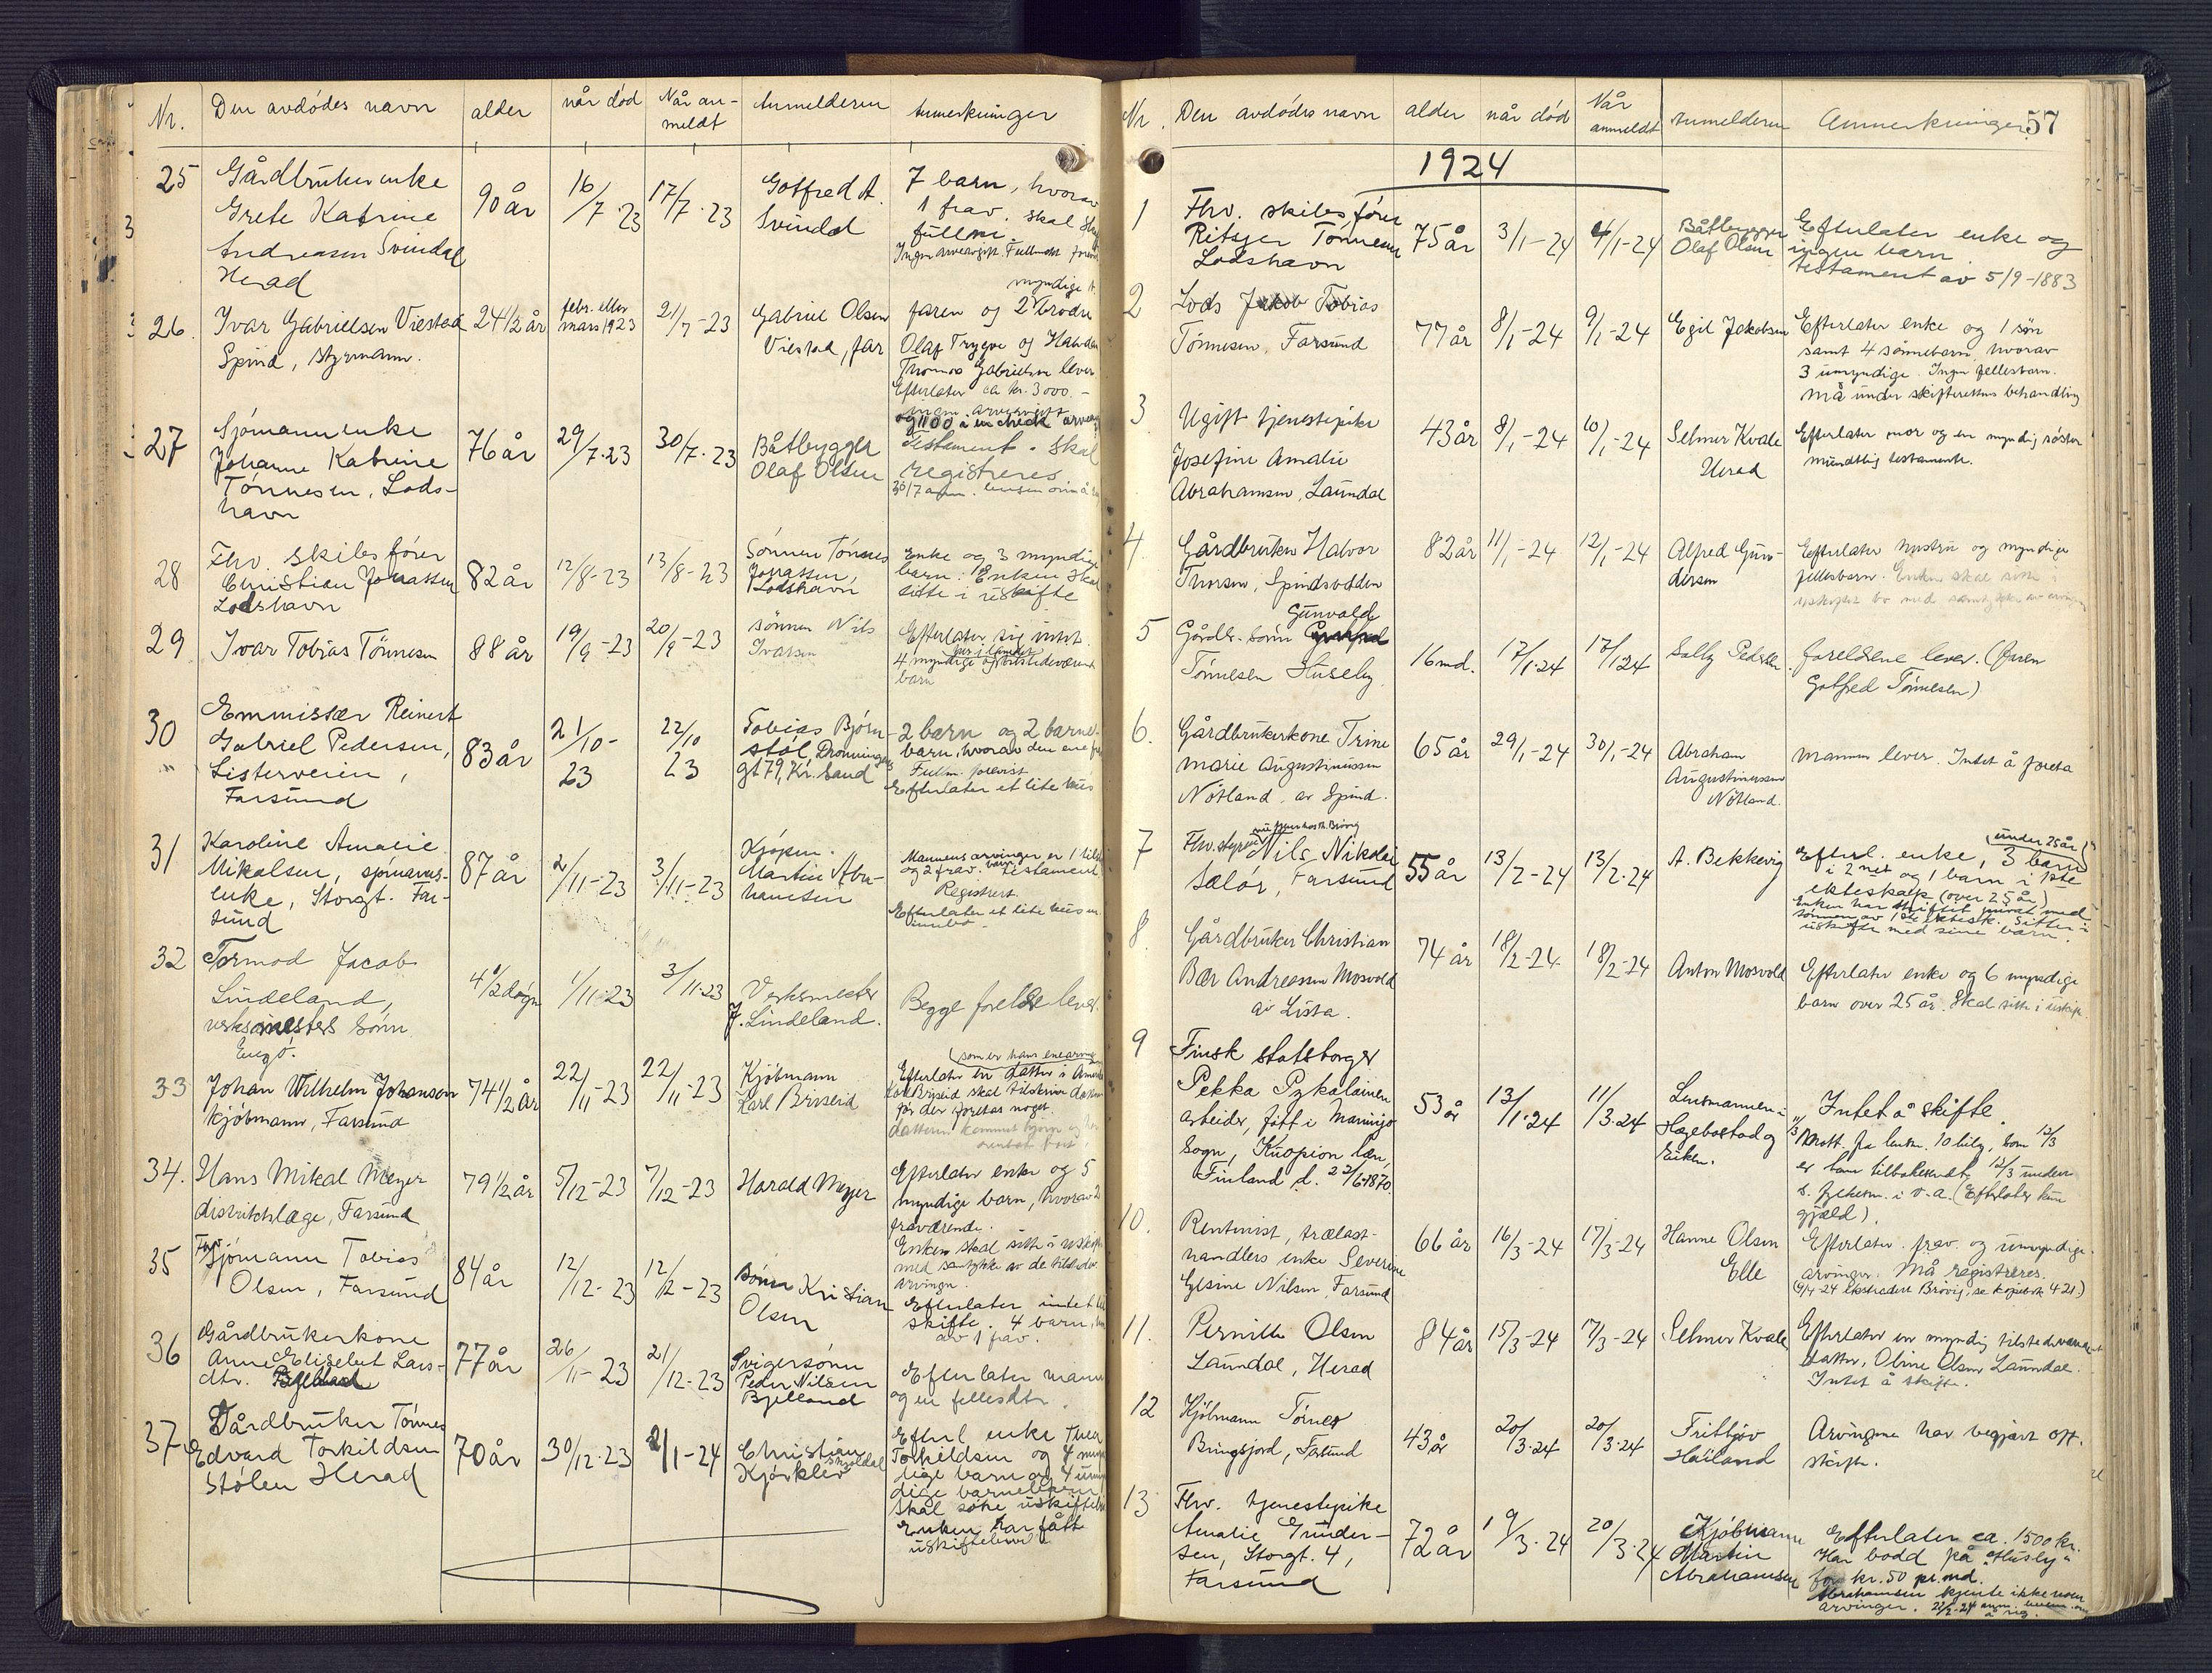 Nr. Den avdødes navn alder når død Når an- Anmelderen Anmerkninger
meldt
25 Gårdbrukerenke 90 år 16/7-23 17/7-23 Gotfred A. 7 barn, hvorav
Grete Katrine Svindal 1 frav. skal
Andreasen Svindal fullm.
Herad Ingen arveavgift. Fullmakt
myndige
26. Ivar Gabrielsen Viestad 24 1/2 år febr. eller 21/7-23 Gabriel Olsen faren og 2 brødre
Spind, styrmann. mars 1923 Viestad, far Olaf Trygve og
Thomas Gabrielsen lever
Efterlater ca kr. 3000.-
27 Sjømannsenke 76 år 29/7-23 30/7-23 Båtbygger Testament. Skal
Johanne Katrine Olaf Olsen registreres
Tønnesen, Lods-
havn
28 Fhv. skibsfører 82 år 12/8-23 13/8-23 Sønnen Tønnes Enke og 3 myndige
Christian Jonassen Jonassen, barn. Enken skal
Lodshavn Lodshavn sitte i uskifte
29 Ivar Tobias Tønnesen 88 år 19/9-23 20/9-23 sønnen Nils Efterlater sig intet
Ivarsen 4 myndige og tilstedeværende
barn
30 Emmissær Reinert 83 år 21/10-23 22/10 23 Tobias Bjørn- 2 barn og 2 barne-
Gabriel Pedersen, støl, Dronningens barn, hvorav den ene
Listerveien, gt 79, Kr. sand Fullm. forevist
Farsund Efterlater et lite hus
31 Karoline Amalie 87 år 2/11-23 3/11-23 Kjøpm. Mannens arvinger er 1 tilst.
Mikalsen, sjømanns- Martin Abra- og 2 frav. barn. Testament
enke, Storgt. Far- hamsen Registrert
sund Efterlater et lite hus m.
innbo.
32 Tormod Jacob 4 1/2 døgn 1/11-23 3/11-23 Verksmester Begge foreldre lever.
Lindeland, J. Lindeland.
verksmesters sønn
Engø.
33 Johan Wilhelm Johansen 74 1/2 år 22/11-23 22/11-23 Kjøbmann (som er hans enearving
kjøbmann, Farsund Karl Briseid Efterlater en datter i Amerika
Karl Briseid skal tilskrive datteren
før der foretas noget.
34. Hans Mikal Meyer 79 1/2 år 5/12-23 7/12-23 Harald Meyer Efterlater enke og 5
distriktslæge, Farsund myndige barn, hvorav 2
fraværende.
Enken skal sitte i uskifte
med samtykke av de tilstedev.
arvinger.
35 Fhv. Sjømann Tobias 84 år 12/12-23 12/12-23 sønn Kristian Efterlater intet
Olsen, Farsund Olsen skifte. 4 barn,
av 1 frav.
36 Gårdbrukerkone 77 år 26/11-23 21/12-23 Svigersønn Efterlater mann
Anne Eliselut Lars- Peder Nilsen og en fellesdtr.
dtr. Bjelland Bjelland
37 Gårdbruker Tønnes 70 år 30/12-23 2/1-24 Christian Efterl enke
Edvard Torkildsen Kjørklev Torkildsen og 4 myn-
Stølen Herad dige barn og 4 umyn
dige barnebarn
skal søke uskiftebev.
Enken har fått
uskiftebevil.
Nr. Den avdødes navn alder når død Når anmeldt Anmelderen Anmerkninger 57
1924
1 Fhv. skibsfører 75 år 3/1-24 4/1-24 Båtbygger Efterlater enke og
Ritsjer Tønnesen Olaf Olsen ingen barn
Lodshavn testament av 5/9-1883
2 Lods Jakob Tobias 77 år 8/1-24 9/1-24 Egil Jakobsen Efterlater enke og 1 søn
Tønnesen, Farsund samt 4 sønnebarn, hvorav
3 umyndige. Ingen fellesbarn.
må under skifterettens behandling
3 Ugift tjenestepike 43 år 8/1-24 10/1-24 Selmer Kvale Efterlater mor og en myndig søster
Josefine Amalie Herad mundtlig testamente.
Abrahamsen, Laundal
4 Gårdbruker Halvor 82 år 11/1-24 12/1-24 Alfred Gun- Efterlater hustru og myndige
Thorsen, Spindsodden dersen fellesbarn. Enken skal sitte i
uskiftet bo med samtykke av arvinger
5 Gårdbr. sønn Gunvald 16 md. 17/1-24 17/1-24 Sally Pedersen foreldrene lever. (Faren
Tønnesen Huseby Gotfred Tønnesen)
6. Gårdbrukerkone Trine 65 år 29/1-24 30/1-24 Abraham mannen lever. Intet å foreta
marie Augustinussen Augustinussen
Nøtland, av Spind. Nøtland.
7 Fhv. styrm. Nils Nikolai 55 år 13/2-24 13/2-24 A. Bekkevig Efterl. enke, 3 barn (under 25 år)
Salør, Farsund i 2net og 1 barn i 1ste
ekteskap (over 25 år)
Enken har skiftet privat med
sønnen av 1ste ektesk. Sitter i
uskifte med sine barn.
8. Gårdbruker Christian 74 år 18/2-24 18/2-24 Anton Mosvold Efterlater enke og 6 myndige
Bær Andreassen Mosvold barn over 25 år. Skal sitte i uskifte
av Lista.
9 Finsk statsborger 53 år 13/1-24 11/3-24 Lensmannen i Intet å skifte.
Pekka Pykäläinen Hægebostad og
arbeider, født i Maninjo Eiken.
sogn, Kuopion læn,
Finland d. 22/6-1870. (Efterlater kun
gjæld).
10. Rentenist, trælast- 66 år 16/3-24 17/3-24 Hanne Olsen Efterlater frav. og umyndige
handlers enke Severine Elle arvinger. Må registreres.
Elsine Nilsen, Farsund (4/4-24 ekstradert Brøvig, se kopibok 421.)
11. Pernille Olsen 84 år 15/3-24 17/3-24 Selmer Kvale Efterlater en myndig tilstedeværende
Laundal, Herad datter, Oline Olsen Laundal.
Intet å skifte.
12 Kjøbmann Tørnes 43 år 20/3-24 20/3-24 Trittjøv Arvingene har begjært off.
Bringsjord, Farsund Hailand skifte.
13 Fhv. tjenestepike 72 år 19/3-24 20/3-24 Kjøbmann Efterlater ca. 1500 kr.
Amalie Gunder- Martin Har bodd på "Husly"
sen, Storgt. 4, Abrahamsen for kr. 50 pr. md.
Farsund Abrahamsen kjente ikke noen
arvinger.